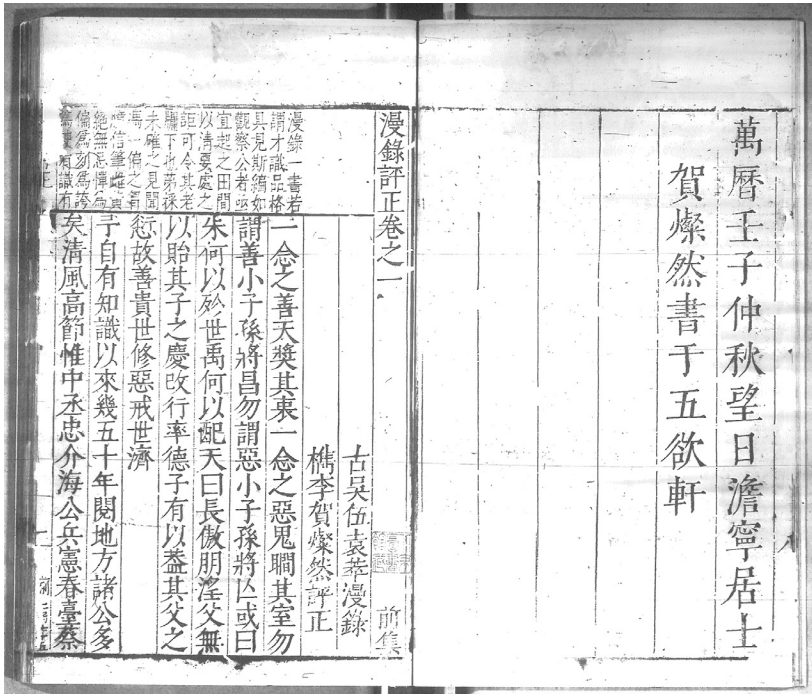 萬曆壬子仲秋望日澹寧居士
賀燦然書于五欲軒
漫錄評正卷之一
前集
古吳伍袁萃漫錄
檇李賀燦然評正
一念之善天獎其衷一念之惡鬼瞷其室勿
謂善小子孫將昌勿謂惡小子孫將亾或曰
朱何以殄世禹何以配天曰長傲朋淫父無
以貽其子之慶改行率德子有以蓋其父之
愆故善貴世修惡戒世濟
予自有知識以來幾五十年閱地方諸公多
矣清風高節惟中丞忠介海公兵憲春臺蔡
漫錄一書若
謂才識品格
具見斯編如
觀察公者亟
宜起之田間
以清要處之
詎可令其老
驥于也第徐
未確之見聞
馮一偏之
信筆雌黃
絕無忌憚為
偏為刻為誇
識有